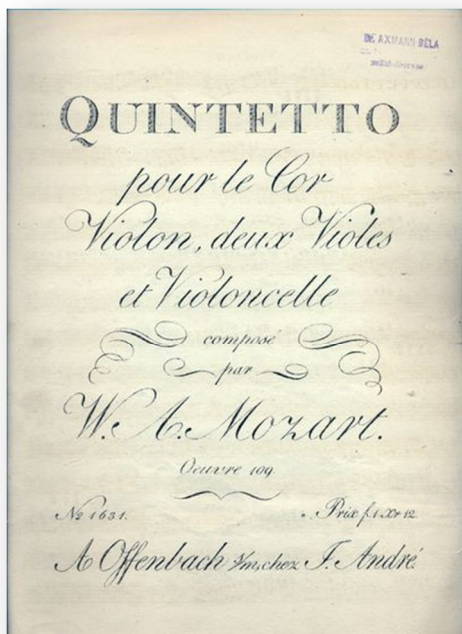 DR. AXMANN BÉLA
QUINTETTO
pour le Cor
Violon, deux Violes
et Violoncelle
composé
par
W. A. Mozart.
Oeuvre 109.
No 1631. Prix f. 1 Xr 12
A Offenbach s/m, chez J. André.